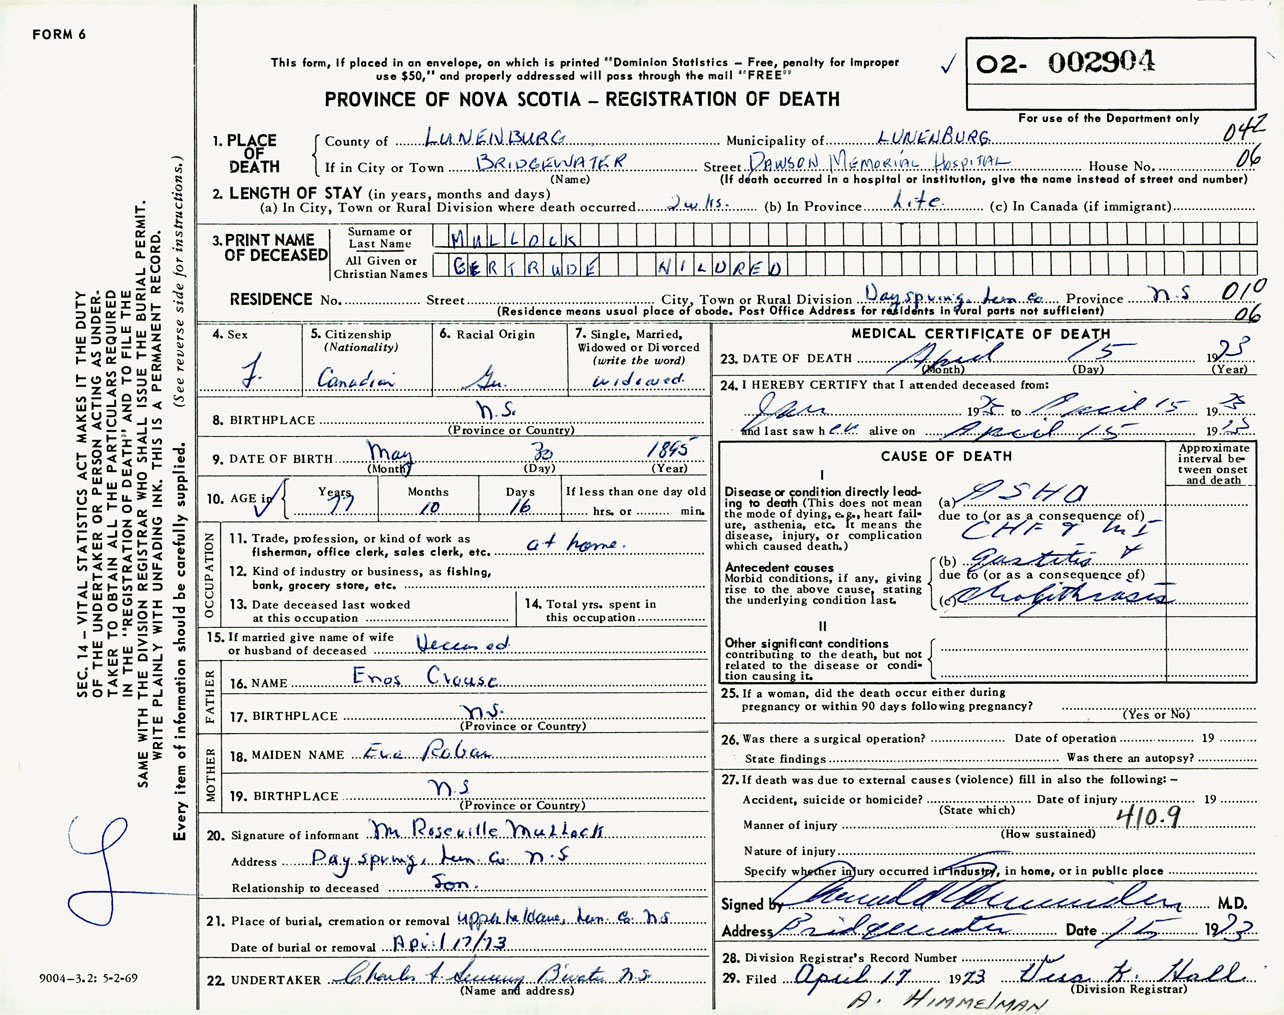 FORM 6
This form, if placed in an envelope, on which is printed "Dominion Statistics – Free, penalty for improper
use $50," and properly addressed will pass through the mail "FREE"
✓ 02- 002904
PROVINCE OF NOVA SCOTIA – REGISTRATION OF DEATH
For use of the Department only
1. PLACE OF DEATH
County of LUNENBURG Municipality of LUNENBURG 042
If in City or Town BRIDGEWATER Street DAWSON MEMORIAL HOSPITAL House No. 06
(Name) (If death occurred in a hospital or institution, give the name instead of street and number)
2. LENGTH OF STAY (in years, months and days)
(a) In City, Town or Rural Division where death occurred 2 wks. (b) In Province Life. (c) In Canada (if immigrant)
3. PRINT NAME OF DECEASED
Surname or Last Name MULLOCK
All Given or Christian Names GERTRUDE MILDRED
RESIDENCE No. Street City, Town or Rural Division Dayspring, Lun. Co. Province N.S 010
(Residence means usual place of abode. Post Office Address for residents in rural parts not sufficient) 06
4. Sex F.
5. Citizenship (Nationality) Canadian
6. Racial Origin Ger.
7. Single, Married, Widowed or Divorced (write the word) widowed.
8. BIRTHPLACE N.S.
(Province or Country)
9. DATE OF BIRTH May 30 1895
(Month) (Day) (Year)
10. AGE in Years 77 Months 10 Days 16 If less than one day old hrs. or min.
OCCUPATION
11. Trade, profession, or kind of work as fisherman, office clerk, sales clerk, etc. at home.
12. Kind of industry or business, as fishing, bank, grocery store, etc.
13. Date deceased last worked at this occupation
14. Total yrs. spent in this occupation
15. If married give name of wife or husband of deceased Deceased
FATHER
16. NAME Enos Crouse
17. BIRTHPLACE N.S.
(Province or Country)
MOTHER
18. MAIDEN NAME Eva Robar
19. BIRTHPLACE N.S
(Province or Country)
20. Signature of informant Mr Roseville Mullock
Address Dayspring, Lun. Co. N.S
Relationship to deceased Son.
21. Place of burial, cremation or removal Upper LaHave, Lun. Co. N.S
Date of burial or removal April 17/73
22. UNDERTAKER Charles B'water N.S.
(Name and address)
MEDICAL CERTIFICATE OF DEATH
23. DATE OF DEATH April 15 1973
(Month) (Day) (Year)
24. I HEREBY CERTIFY that I attended deceased from:
Jan 1973 to April 15 1973
and last saw her alive on April 15 1973
CAUSE OF DEATH
Approximate interval between onset and death
I
Disease or condition directly leading to death (This does not mean the mode of dying, e.g., heart failure, asthenia, etc. It means the disease, injury, or complication which caused death.)
(a) ASHD
due to (or as a consequence of)
CHF & MI
Antecedent causes
Morbid conditions, if any, giving rise to the above cause, stating the underlying condition last.
(b) gastritis &
due to (or as a consequence of)
(c)
II
Other significant conditions contributing to the death, but not related to the disease or condition causing it.
25. If a woman, did the death occur either during pregnancy or within 90 days following pregnancy?
(Yes or No)
26. Was there a surgical operation? Date of operation 19
State findings Was there an autopsy?
27. If death was due to external causes (violence) fill in also the following: –
Accident, suicide or homicide? Date of injury 19
(State which)
Manner of injury 410.9
(How sustained)
Nature of injury
Specify whether injury occurred in industry, in home, or in public place
Signed by M.D.
Address Bridgewater Date 15 1973
28. Division Registrar's Record Number
29. Filed April 17 1973 Vera K. Hall
(Division Registrar)
A. HIMMELMAN
SEC. 14 – VITAL STATISTICS ACT MAKES IT THE DUTY
OF THE UNDERTAKER OR PERSON ACTING AS UNDER-
TAKER TO OBTAIN ALL THE PARTICULARS REQUIRED
IN THE "REGISTRATION OF DEATH" AND TO FILE THE
SAME WITH THE DIVISION REGISTRAR WHO SHALL ISSUE THE BURIAL PERMIT.
WRITE PLAINLY WITH UNFADING INK. THIS IS A PERMANENT RECORD.
Every item of information should be carefully supplied. (See reverse side for instructions.)
9004-3.2: 5-2-69